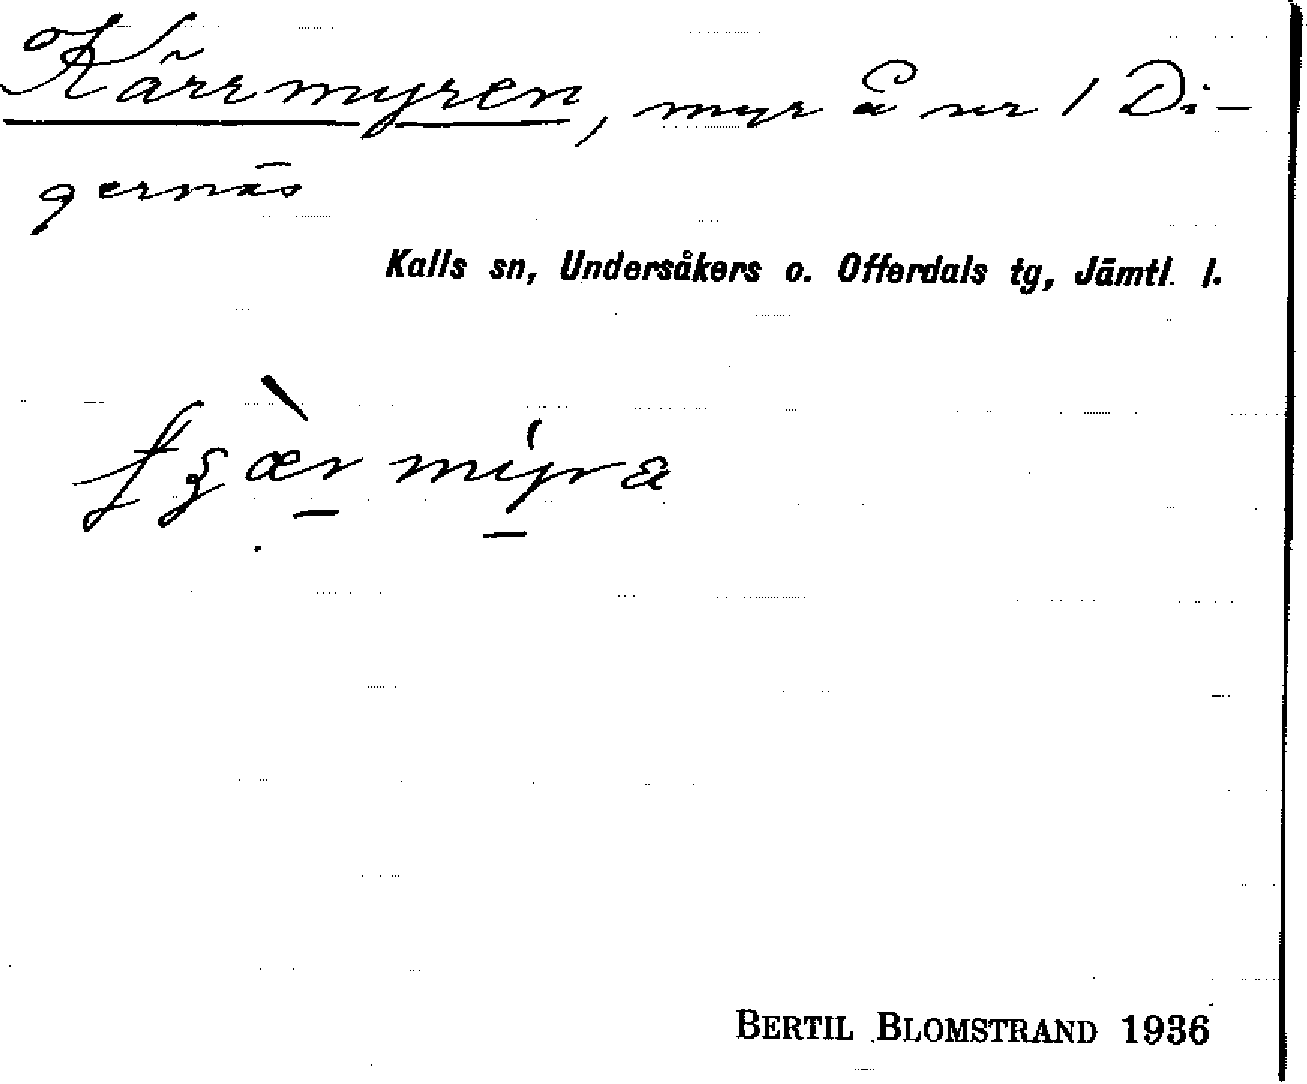 Kärrmyren, myr å nr 1 Di-
gernäs
Kalls sn, Undersåkers o. Offerdals tg, Jämtl. l.
BERTIL BLOMSTRAND 1936